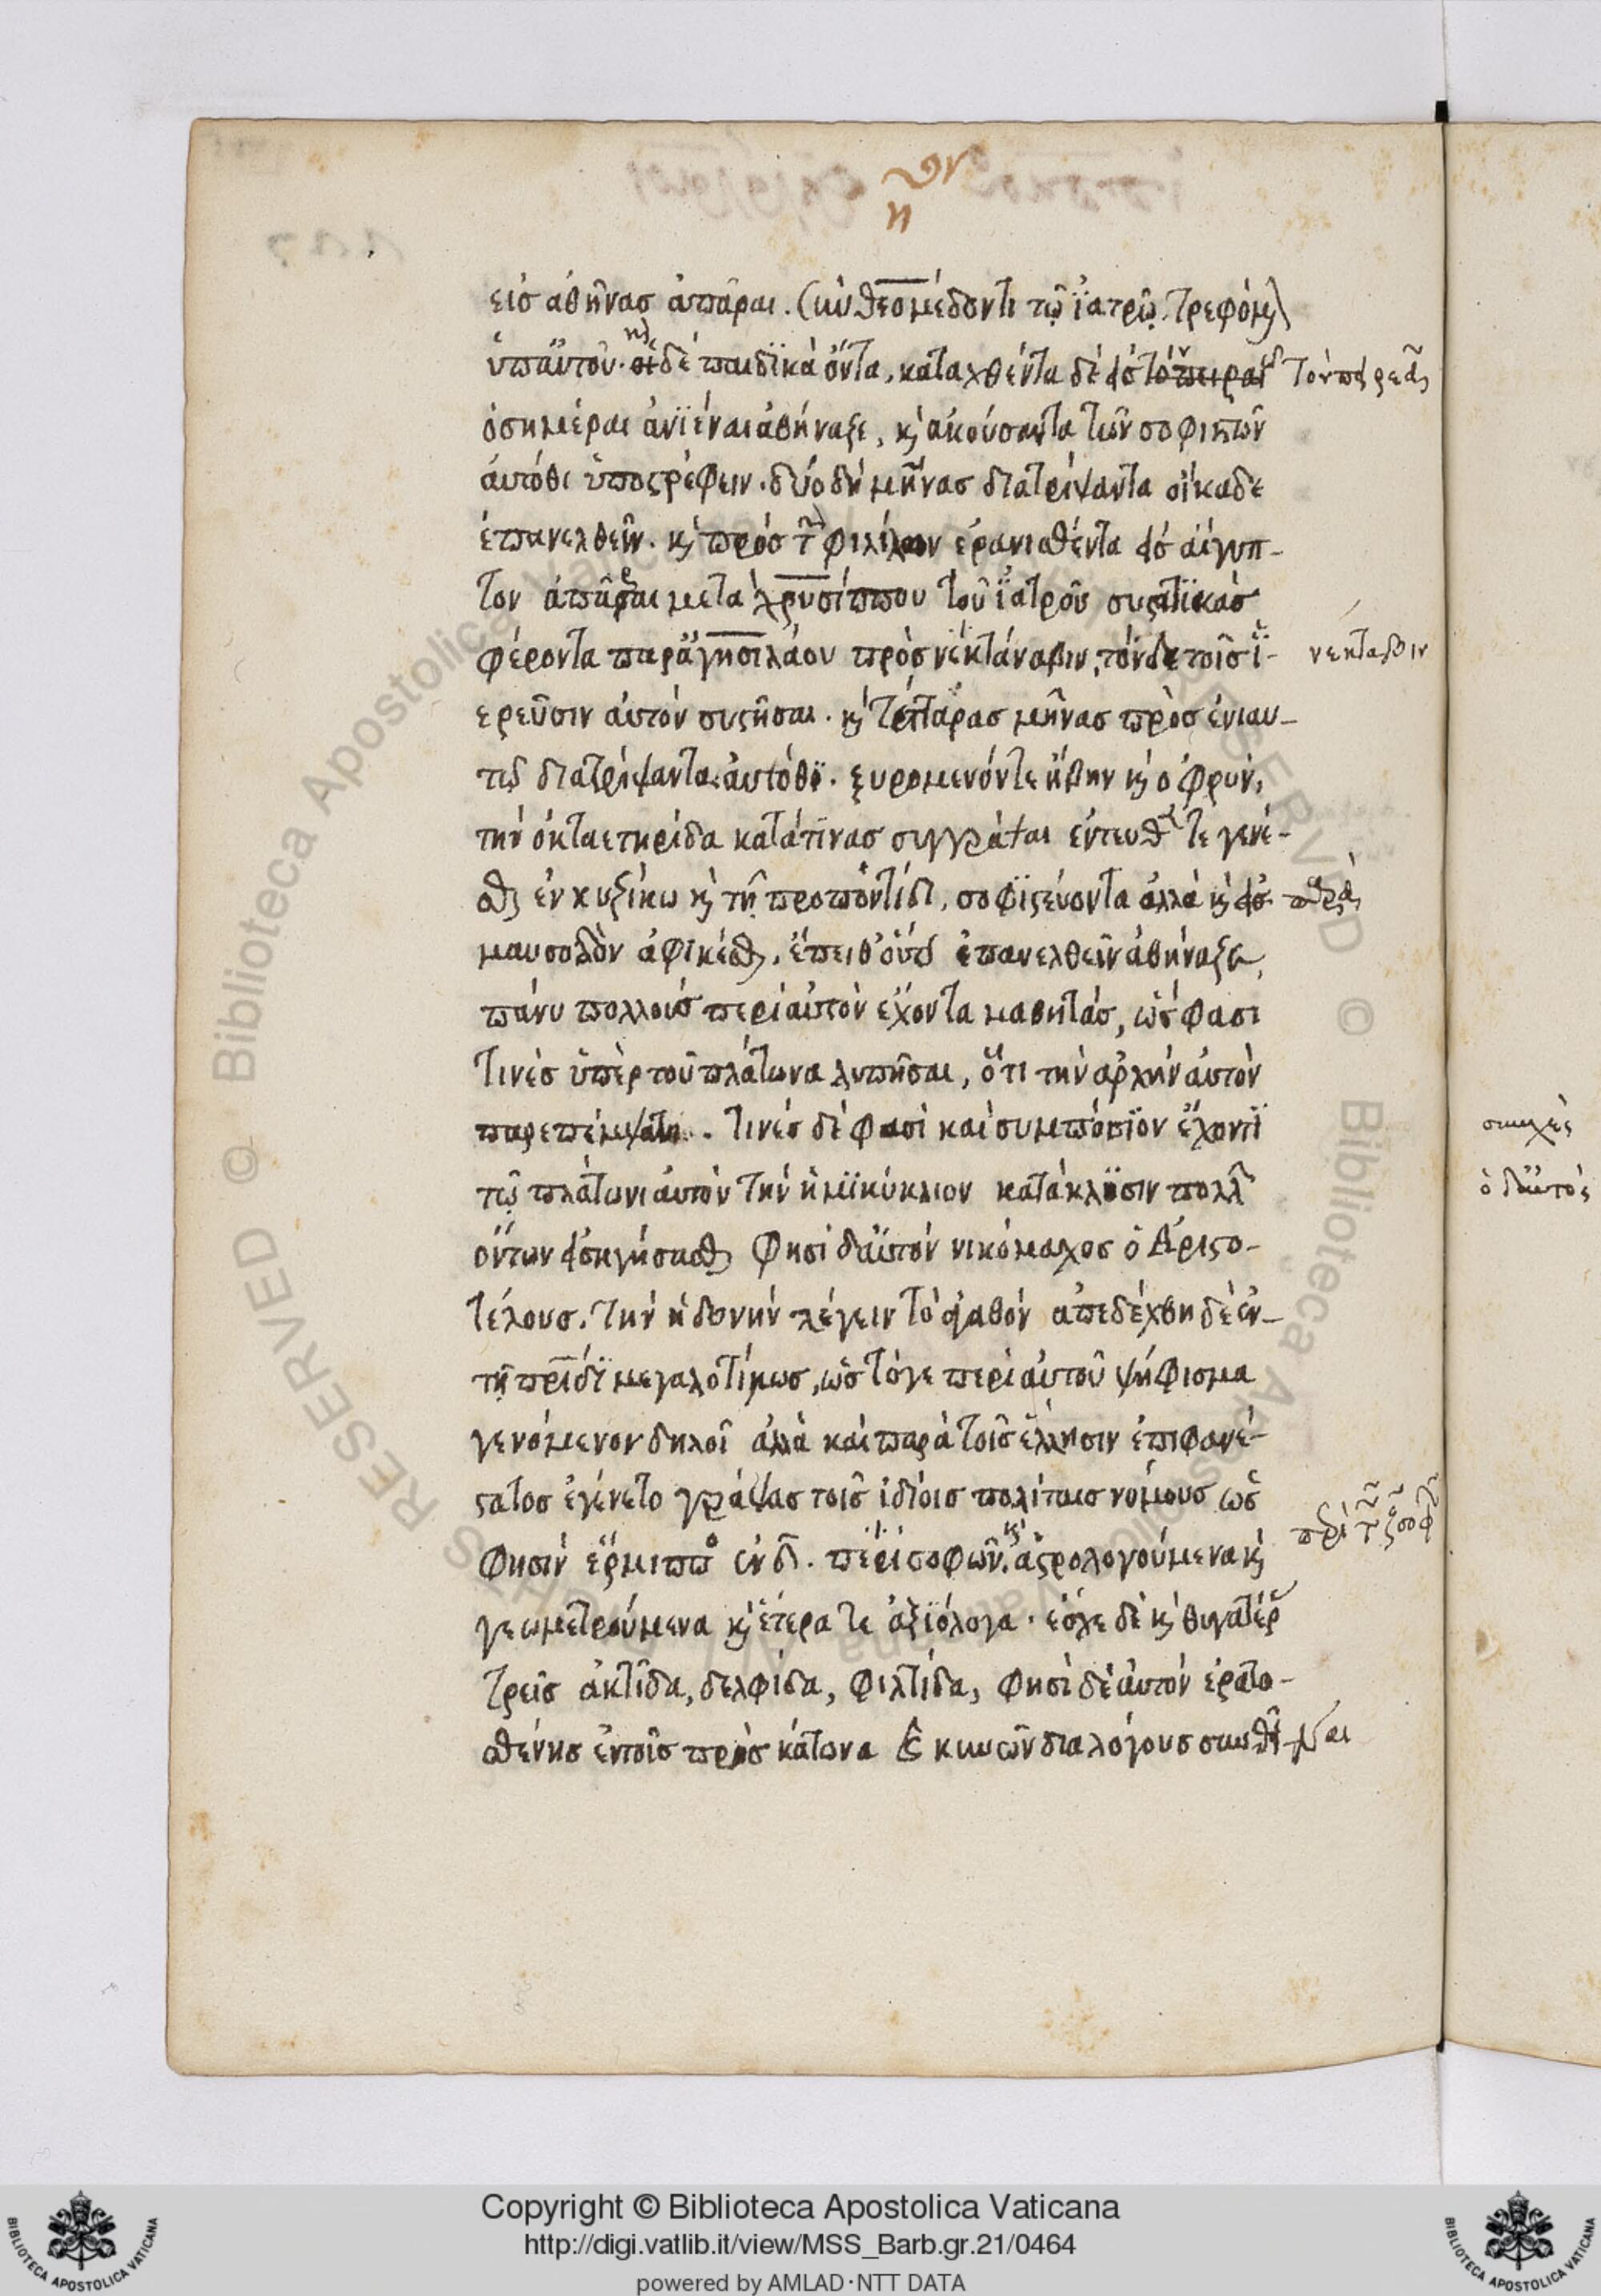 εἰσ ἀθήνασ ἀπᾶραι. σὺν θεομέδοντι τῷ ἰατρῷ. τρεφόμ
ὑπ' αὐτοῦ. δὲ παιδικὰ ὄντα, καταχθέντα δὲ εἰς τὸν πειραι τὸν πειρεᾶ
ὁσημέραι ἀνϊέναι ἀθήναζε, κỳ ἀκούσαντα τῶν σοφιστῶν
αὐτόθι ὑποστρέφειν. δύο δὴ μῆνας διατρίψαντα οἴκαδε
ἐπανελθεῖν. κ πρὸς τ φιλίλων ἐρανισθέντα εἰς αἴγυπ-
τον ἀπᾶραι μετὰ χρυσίππου τοῦ ἰατροῦ συστατϊκὰσ
φέροντα παρ' ἀγησιλάου πρὸς νεκτάναβιν, τὸν δὲ τοῖσ ἱ- νεκταβιν
ερεῦσιν αὐτὸν συστῆσαι. κ τέτταρας μῆνας πρὸς ἐνιαυ-
τῷ διατρίψαντα αὐτόθϊ. ξυρόμενόν τε ἥβην κ ὀφρύν,
τὴν ὀκταετηρίδα κατά τϊνασ συγγράψαι ἐντεῦθ τε γενέ-
σθ ἐν κυζίκω κ τῇ προποντίδι, σοφϊστεύοντα ἀλλὰ κ εἰς παρὰ
μαυσολὸν ἀφικέσθ. ἔπειθ' οὕτ ἐπανελθεῖν ἀθήναζε,
πάνυ πολλοὺς περὶ αὐτὸν ἔχοντα μαθητὰς, ὥς φασι
τινὲσ ὑπὲρ τοῦ πλάτωνα λυπῆσαι, ὅτι τὴν ἀρχὴν αὐτὸν
παρεπέμψατο. τινὲς δέ φασι καὶ συμπόσϊον ἔχοντϊ
τῷ πλάτωνι αὐτὸν τὴν ἡμϊκύκλιον κατάκλϊσιν πολλ
ὄντων εἰσηγήσασθ φησὶ δ' αὐτὸν νικόμαχος ὁ Ἀριστο-
τέλους. τὴν ἡδονὴν λέγειν τὸ ἀγαθόν ἀπεδέχθη δὲ ἐν
τῇ πρίδϊ μεγαλοτίμως, ὡς τόγε περὶ αὐτοῦ ψήφισμα
γενόμενον δηλοῖ ἀλλὰ καὶ παρὰ τοῖς ἕλλησιν ἐπιφανέ-
στατος ἐγένετο γράψας τοῖς ἰδίοις πολίταις νόμους ὥς
φησιν ἕρμιππο ἐν δ. περὶ σοφῶν. κ ἀστρολογούμενα κ περὶ τ ζ σοφ
γεωμετρούμενα κ ἕτερα τε ἀξϊόλογα. ἔσχε δὲ κ θυγατέρ
τρεῖς ἀκτίδα, δελφίδα, φιλτίδα, φησὶ δὲ αὐτὸν ἐρατο-
σθένης ἐν τοῖς πρὸς κάτωνα κ κυνῶν διαλόγους συνθεῖναι
συνεχὲς
ὁ δ' αὐτὸς
Copyright © Biblioteca Apostolica Vaticana
http://digi.vatlib.it/view/MSS_Barb.gr.21/0464
powered by AMLAD·NTT DATA